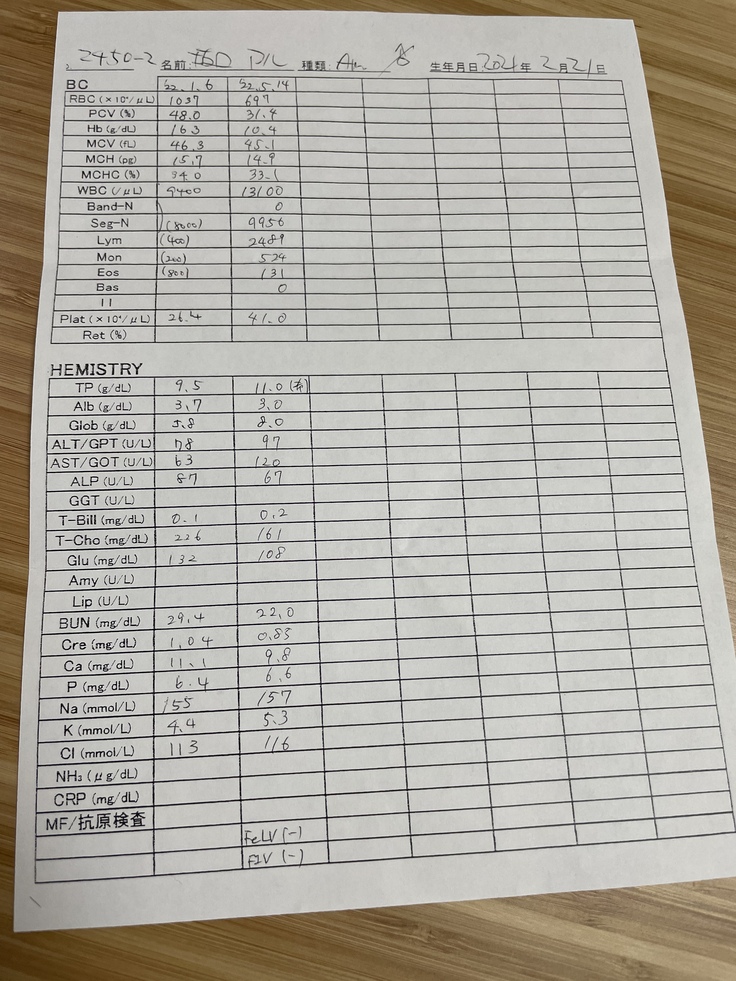 2450-2 名前: 種類: 生年月日 2021年 2月 21日
BC '22.1.6 '22.5.14
RBC (×10⁴/μL) 1037 697
PCV (%) 48.0 31.4
Hb (g/dL) 16.3 10.4
MCV (fL) 46.3 45.1
MCH (pg) 15.7 14.9
MCHC (%) 34.0 33.1
WBC (/μL) 9400 13100
Band-N 0
Seg-N (8000) 9956
Lym (400) 2489
Mon (200) 524
Eos (800) 131
Bas 0
Plat (×10⁴/μL) 26.4 41.0
Ret (%)
HEMISTRY
TP (g/dL) 9.5 11.0
Alb (g/dL) 3.7 3.0
Glob (g/dL) 5.8 8.0
ALT/GPT (U/L) 78 97
AST/GOT (U/L) 63 120
ALP (U/L) 87 67
GGT (U/L)
T-Bill (mg/dL) 0.1 0.2
T-Cho (mg/dL) 226 161
Glu (mg/dL) 132 108
Amy (U/L)
Lip (U/L)
BUN (mg/dL) 29.4 22.0
Cre (mg/dL) 1.04 0.83
Ca (mg/dL) 11.1 9.8
P (mg/dL) 6.4 6.6
Na (mmol/L) 155 157
K (mmol/L) 4.4 5.3
Cl (mmol/L) 113 116
NH₃ (μg/dL)
CRP (mg/dL)
MF/抗原検査
FeLV (-)
FIV (-)